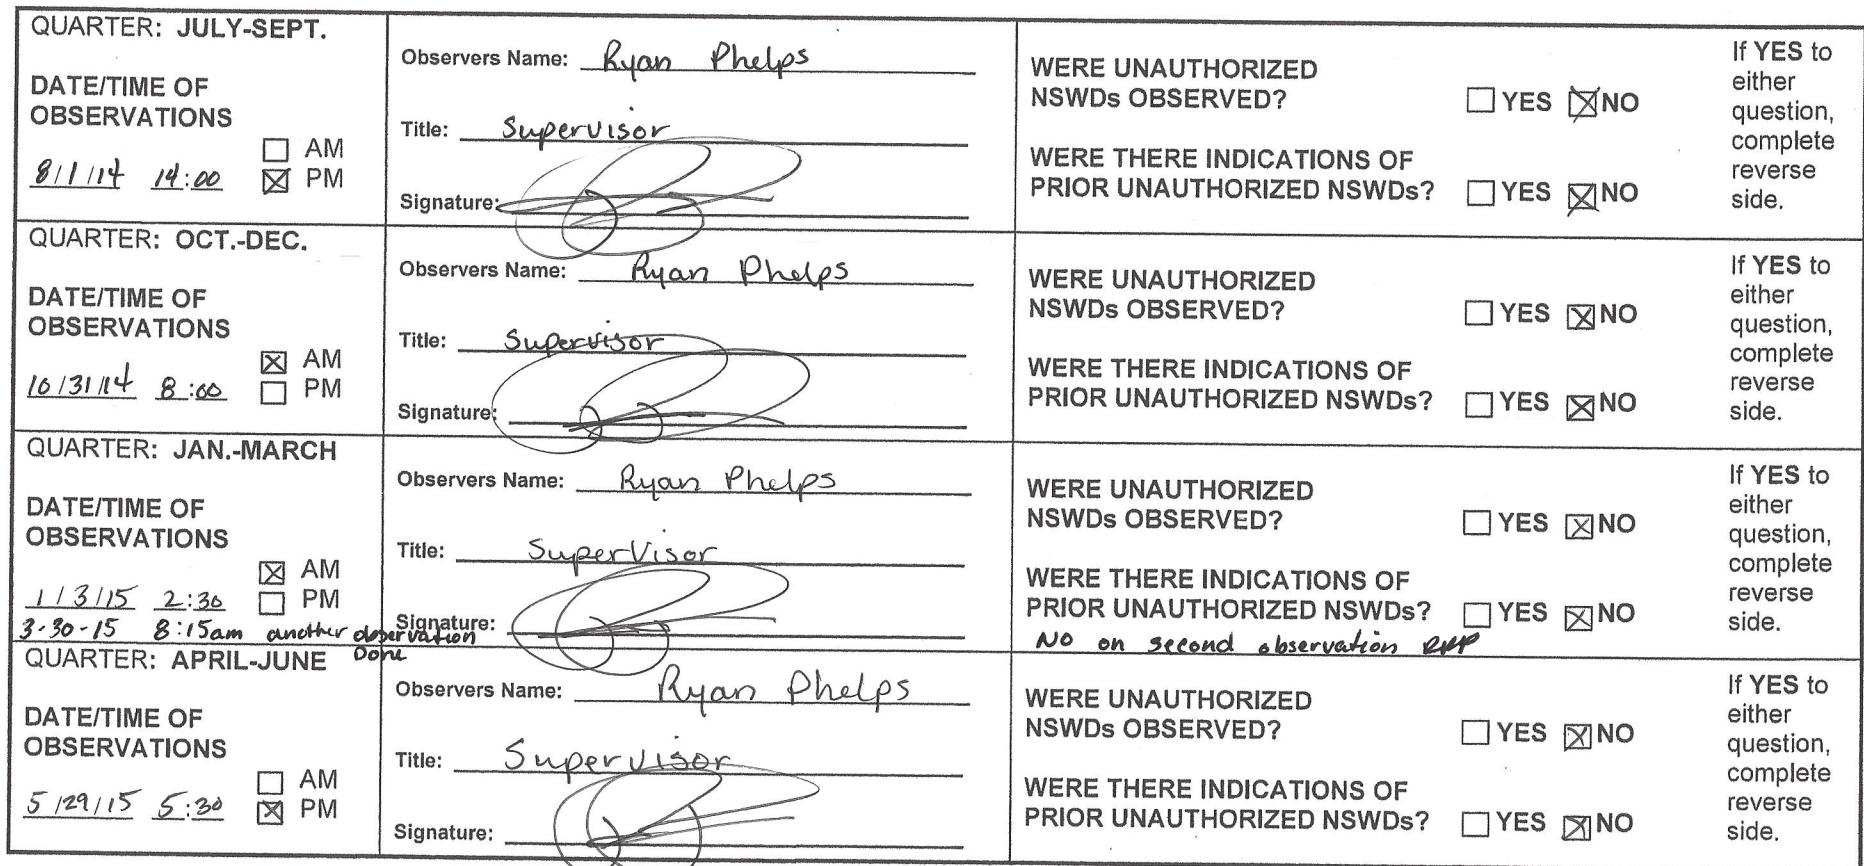 QUARTER: JULY-SEPT.
DATE/TIME OF
OBSERVATIONS
☐ AM
8/1/14 14:00 ☒ PM
Observers Name: Ryan Phelps
Title: Supervisor
Signature:
WERE UNAUTHORIZED
NSWDs OBSERVED? ☐ YES ☒ NO
WERE THERE INDICATIONS OF
PRIOR UNAUTHORIZED NSWDs? ☐ YES ☒ NO
If YES to
either
question,
complete
reverse
side.
QUARTER: OCT.-DEC.
DATE/TIME OF
OBSERVATIONS
☒ AM
10/31/14 8:00 ☐ PM
Observers Name: Ryan Phelps
Title: Supervisor
Signature:
WERE UNAUTHORIZED
NSWDs OBSERVED? ☐ YES ☒ NO
WERE THERE INDICATIONS OF
PRIOR UNAUTHORIZED NSWDs? ☐ YES ☒ NO
If YES to
either
question,
complete
reverse
side.
QUARTER: JAN.-MARCH
DATE/TIME OF
OBSERVATIONS
☒ AM
1/3/15 2:30 ☐ PM
3-30-15 8:15am another observation
Done
Observers Name: Ryan Phelps
Title: Supervisor
Signature:
WERE UNAUTHORIZED
NSWDs OBSERVED? ☐ YES ☒ NO
WERE THERE INDICATIONS OF
PRIOR UNAUTHORIZED NSWDs? ☐ YES ☒ NO
NO on second observation RPP
If YES to
either
question,
complete
reverse
side.
QUARTER: APRIL-JUNE
DATE/TIME OF
OBSERVATIONS
☐ AM
5/29/15 5:30 ☒ PM
Observers Name: Ryan Phelps
Title: Supervisor
Signature:
WERE UNAUTHORIZED
NSWDs OBSERVED? ☐ YES ☒ NO
WERE THERE INDICATIONS OF
PRIOR UNAUTHORIZED NSWDs? ☐ YES ☒ NO
If YES to
either
question,
complete
reverse
side.